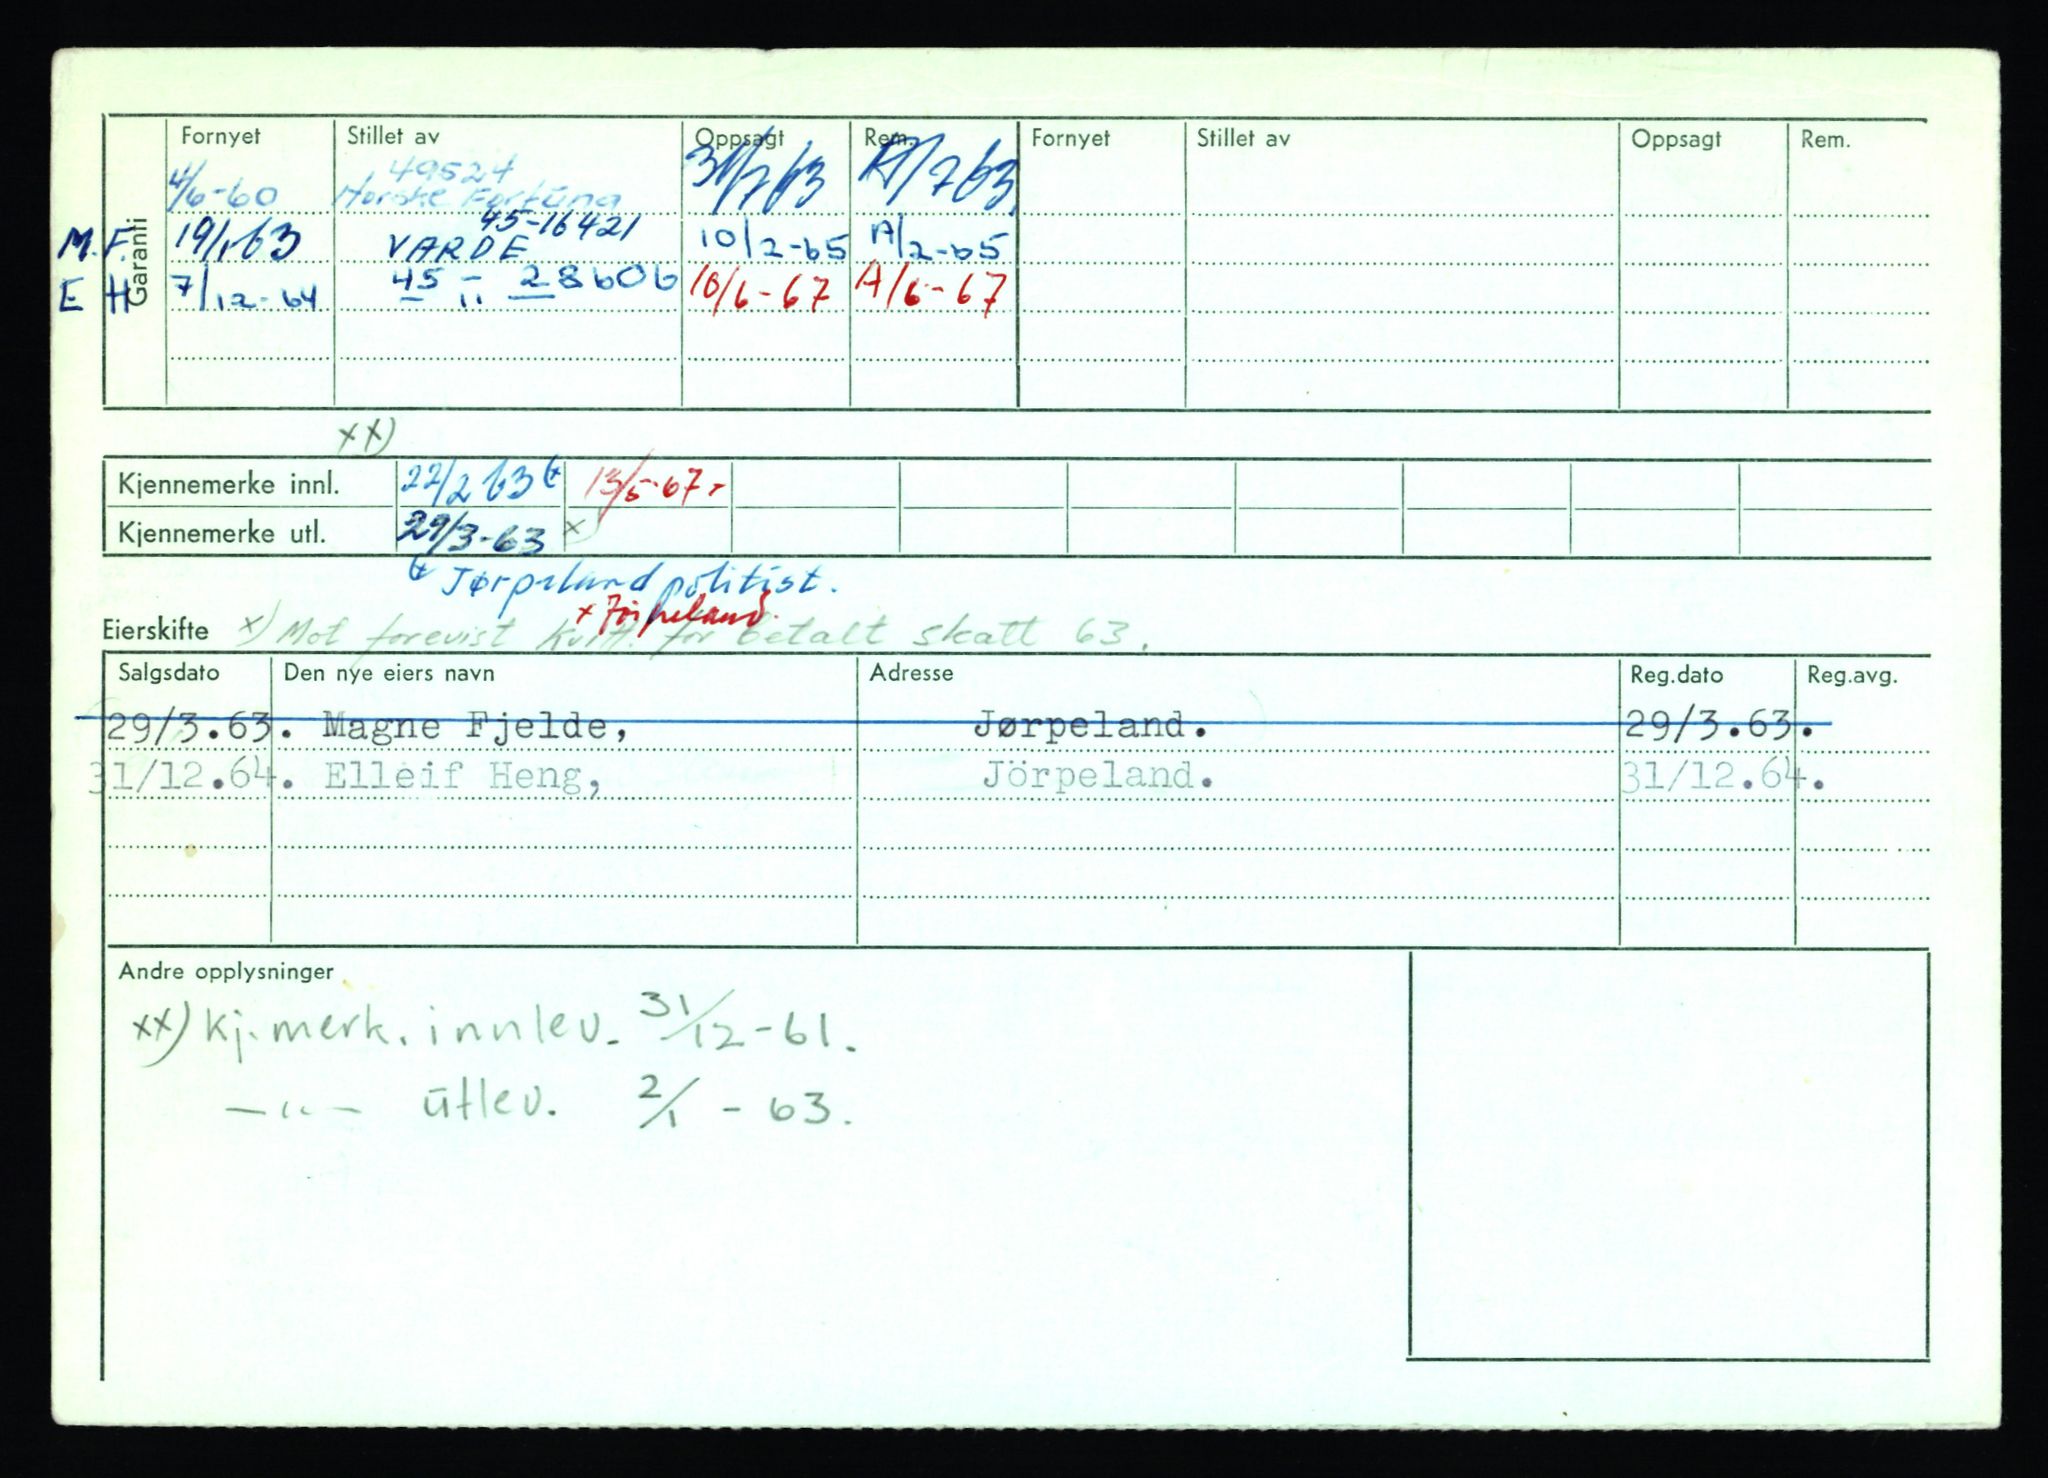 Fornyet Stillet av Oppsagt Rem. Fornyet Stillet av Oppsagt Rem.
Garanti
49524
4/6-60 Norske Fortuna 31/7 63 A/7 63
45-16421
M. F. 19/1-63 VARDE 10/2-65 A/2-65
E H 7/12-64 45 - 28606 10/6-67 A/6-67
— ,, —
xx)
Kjennemerke innl. 22/2 63 13/5-67
Kjennemerke utl. 29/3-63 x)
Jørpeland politist.
x Jørpeland
Eierskifte x) Mot forevist kvitt. for betalt skatt 63.
Salgsdato Den nye eiers navn Adresse Reg.dato Reg.avg.
29/3.63. Magne Fjelde, Jørpeland. 29/3.63.
31/12.64. Elleif Heng, Jörpeland. 31/12.64.
Andre opplysninger
xx) Kj.merk. innlev. 31/12-61.
—"— utlev. 2/1 - 63.